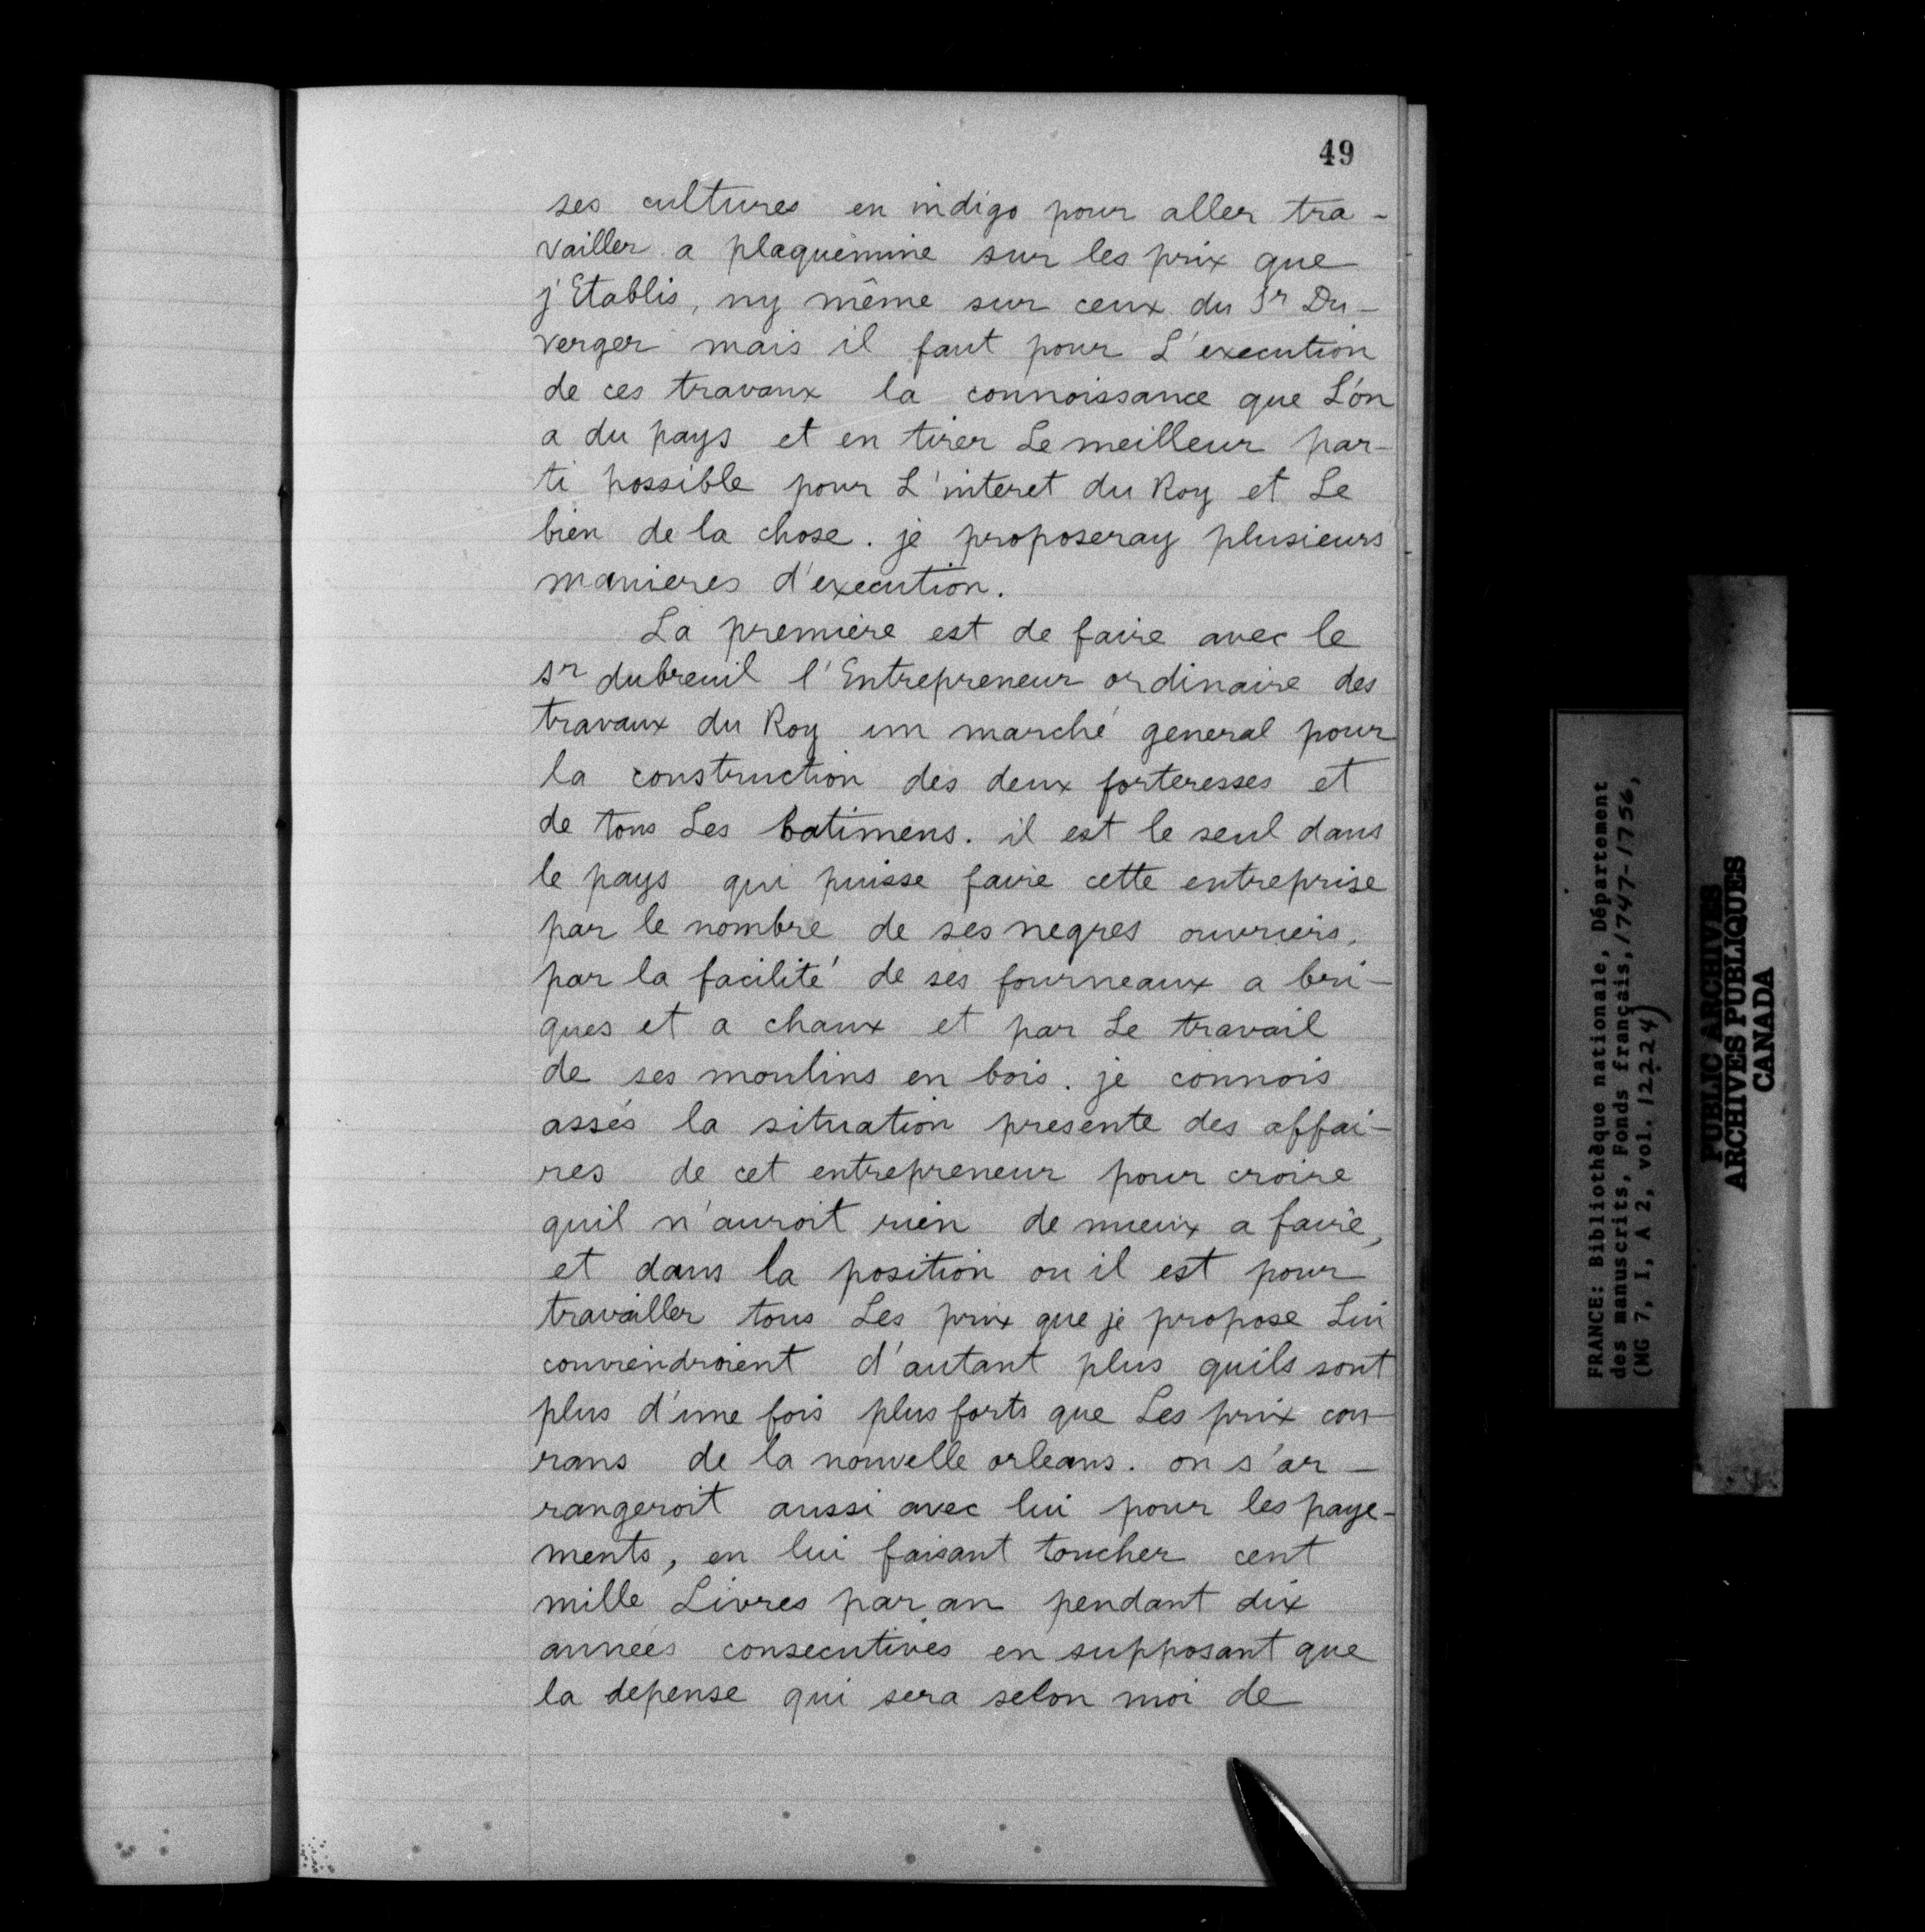 49
ses cultures en indigo pour aller tra-
vailler a plaquemine sur les prix que
j'Etablis, ny même sur ceux du Sr Du-
verger mais il faut pour L'execution
de ces travaux la connoissance que L'on
a du pays et en tirer Le meilleur par-
ti possible pour L'interet du Roy et Le
bien de la chose. je proposeray plusieurs
manieres d'execution.
La premiere est de faire avec le
sr dubreuil l'Entrepreneur ordinaire des
travaux du Roy un marché general pour
la construction des deux forteresses et
de tous Les batimens. il est le seul dans
le pays qui puisse faire cette entreprise
par le nombre de ses negres ouvriers,
par la facilité de ses fourneaux a bri-
ques et a chaux et par Le travail
de ses moulins en bois. je connois
assés la situation presente des affai-
res de cet entrepreneur pour croire
quil n'auroit rien de mieux a faire,
et dans la position ou il est pour
travailler tous Les prix que je propose Lui
conviendroient d'autant plus quils sont
plus d'une fois plus forts que Les prix cou-
rans de la nouvelle orleans. on s'ar-
rangeroit aussi avec lui pour les paye-
ments, en lui faisant toucher cent
mille Livres par an pendant dix
années consecutives en supposant que
la depense qui sera selon moi de
FRANCE: Bibliothèque nationale, Département
des manuscrits, Fonds français, 1747-1756,
(MG 7, I, A 2, vol. 12224)
PUBLIC ARCHIVES
ARCHIVES PUBLIQUES
CANADA